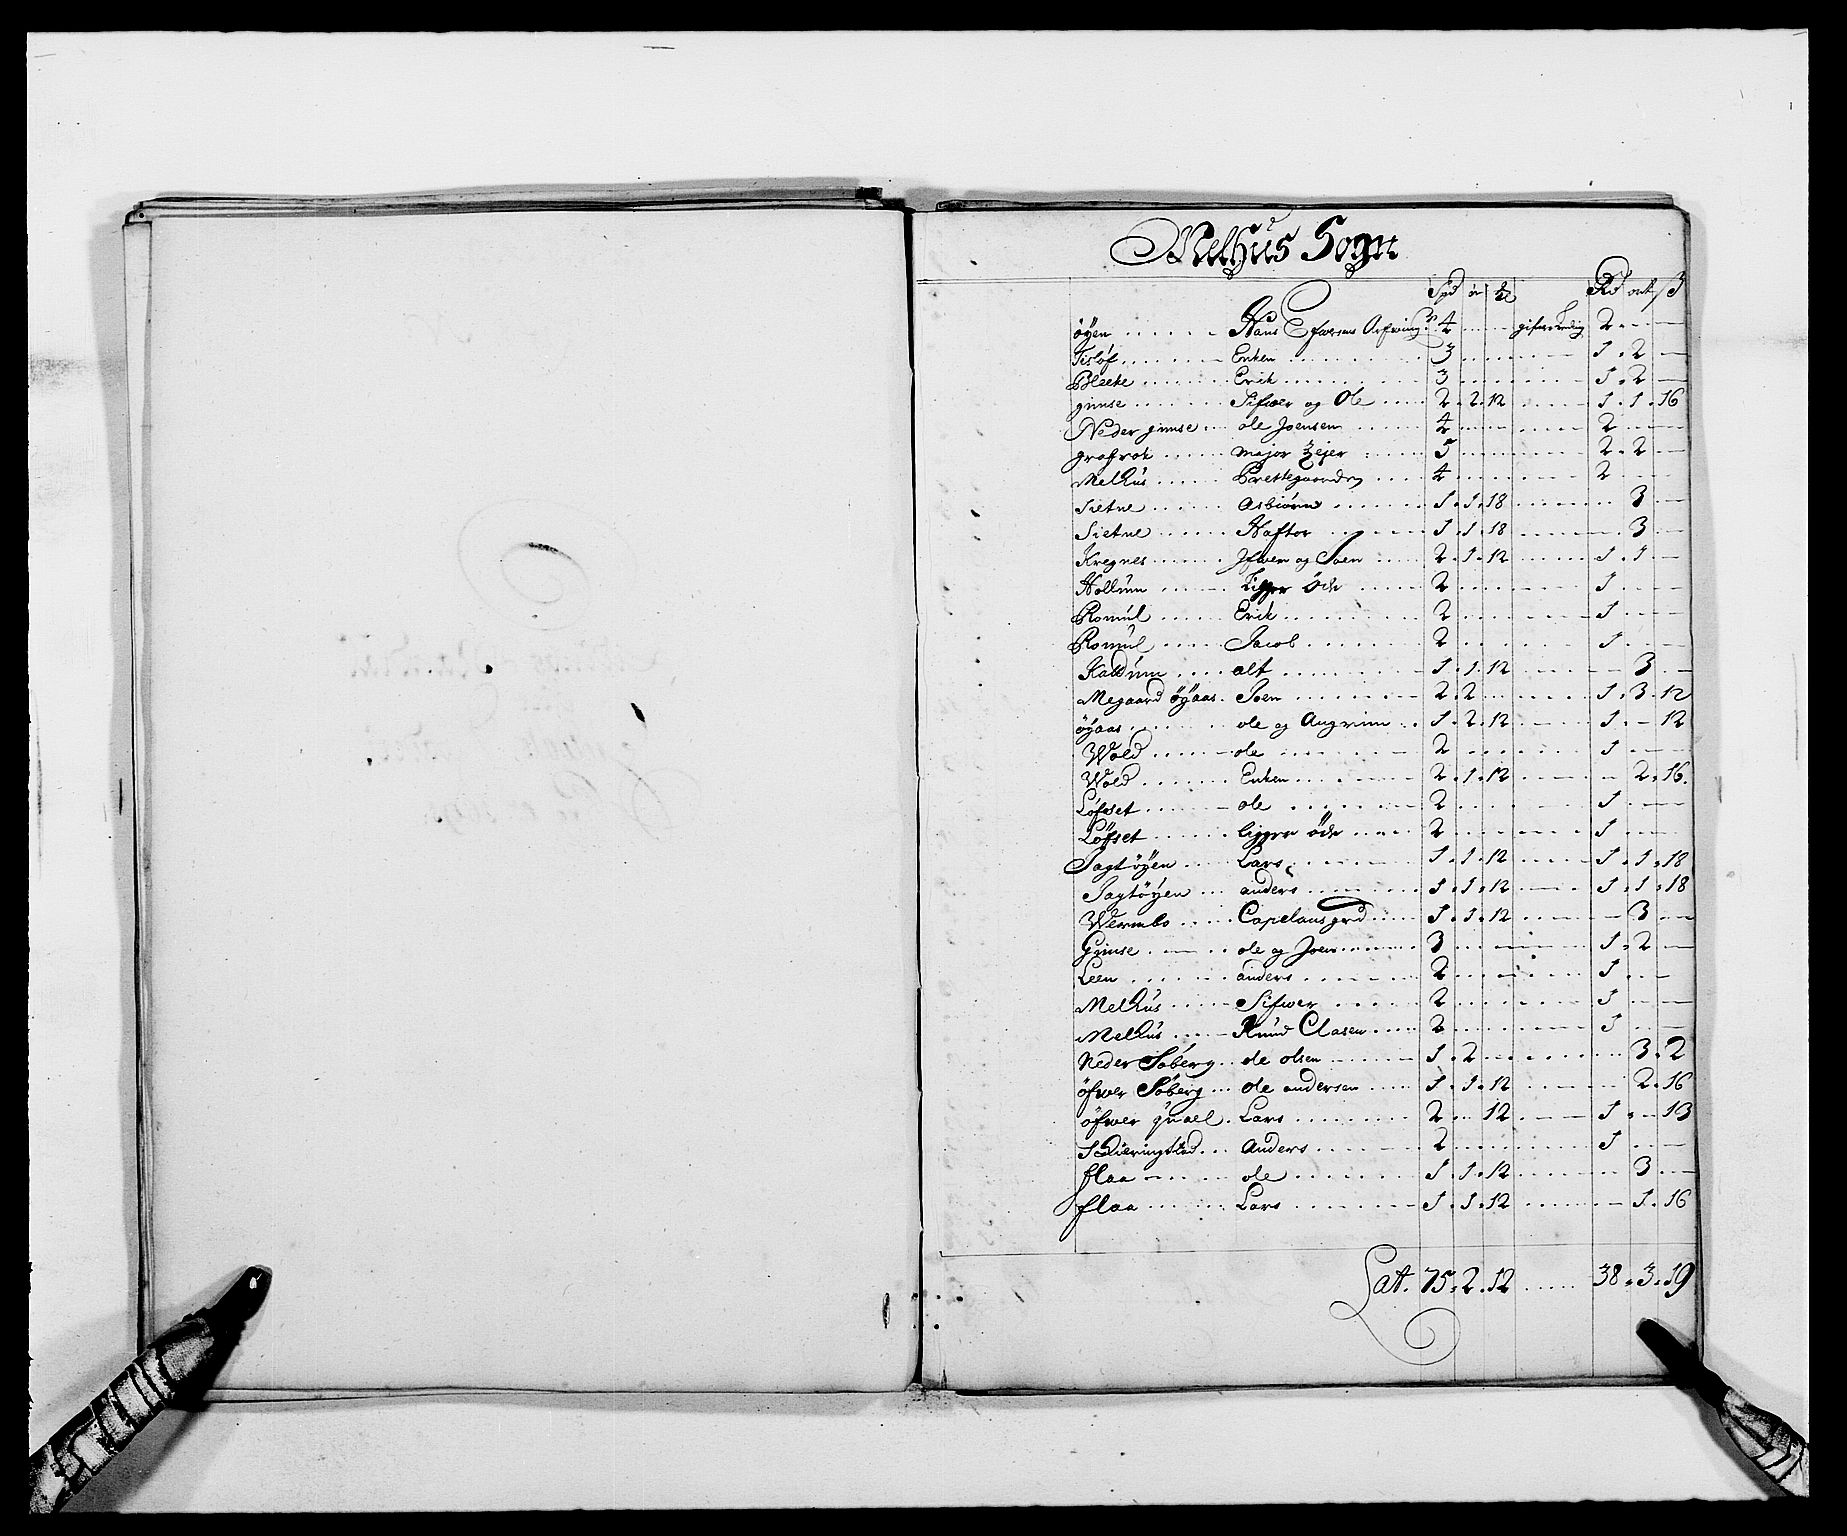 Melhus Sogn
Spd ör Rd ort ß
öÿen Hans 4 2
Fislöf Enken 3 1 2
Bleeke Erik 3 1 2
gimse Sifwer og Ole 2 2 12 1 1 16
Neder gimse ole Joensen 4 2
grafrok major 5 2 2
Melhus Prestegaarden 4 2
Sietne Asbiörn 1 1 18 3
Sietne Haftor 1 1 18 3
Kregnes Ifwer og Joen 2 1 12 1 1
Hollum Ligger öde 2 1
Romül Erik 2 1
Romül Jacob 2 1
Kaldüm alt 1 1 12 3
Megaard öÿaas Joen 2 2 1 3 12
öÿaas ole og Angrim 1 2 12 1 12
Wold ole 2 1
Wold Enken 2 1 12 2 16
Löfset ole 2 1
Löfset ligger öde 2 1
Sagtöÿen Lars 1 1 12 1 1 18
Sagtöÿen anders 1 1 12 1 1 18
Wermbo Capelans grd 1 1 12 3
Gimse ole og Joen 3 1 2
Leen anders 2 1
Melhus Sifwer 2 1
Melhus Knud Clasen 2 1
Neder Söberg ole olsen 1 2 3 2
öfwer Söberg ole andersen 1 1 12 2 16
öfwer Quael Lars 2 12 1 13
Skieringstad Anders 2 1
flaa ole 1 1 12 3
flaa Lars 1 1 12 1 16
Lat. 75 2 12 38 3 19